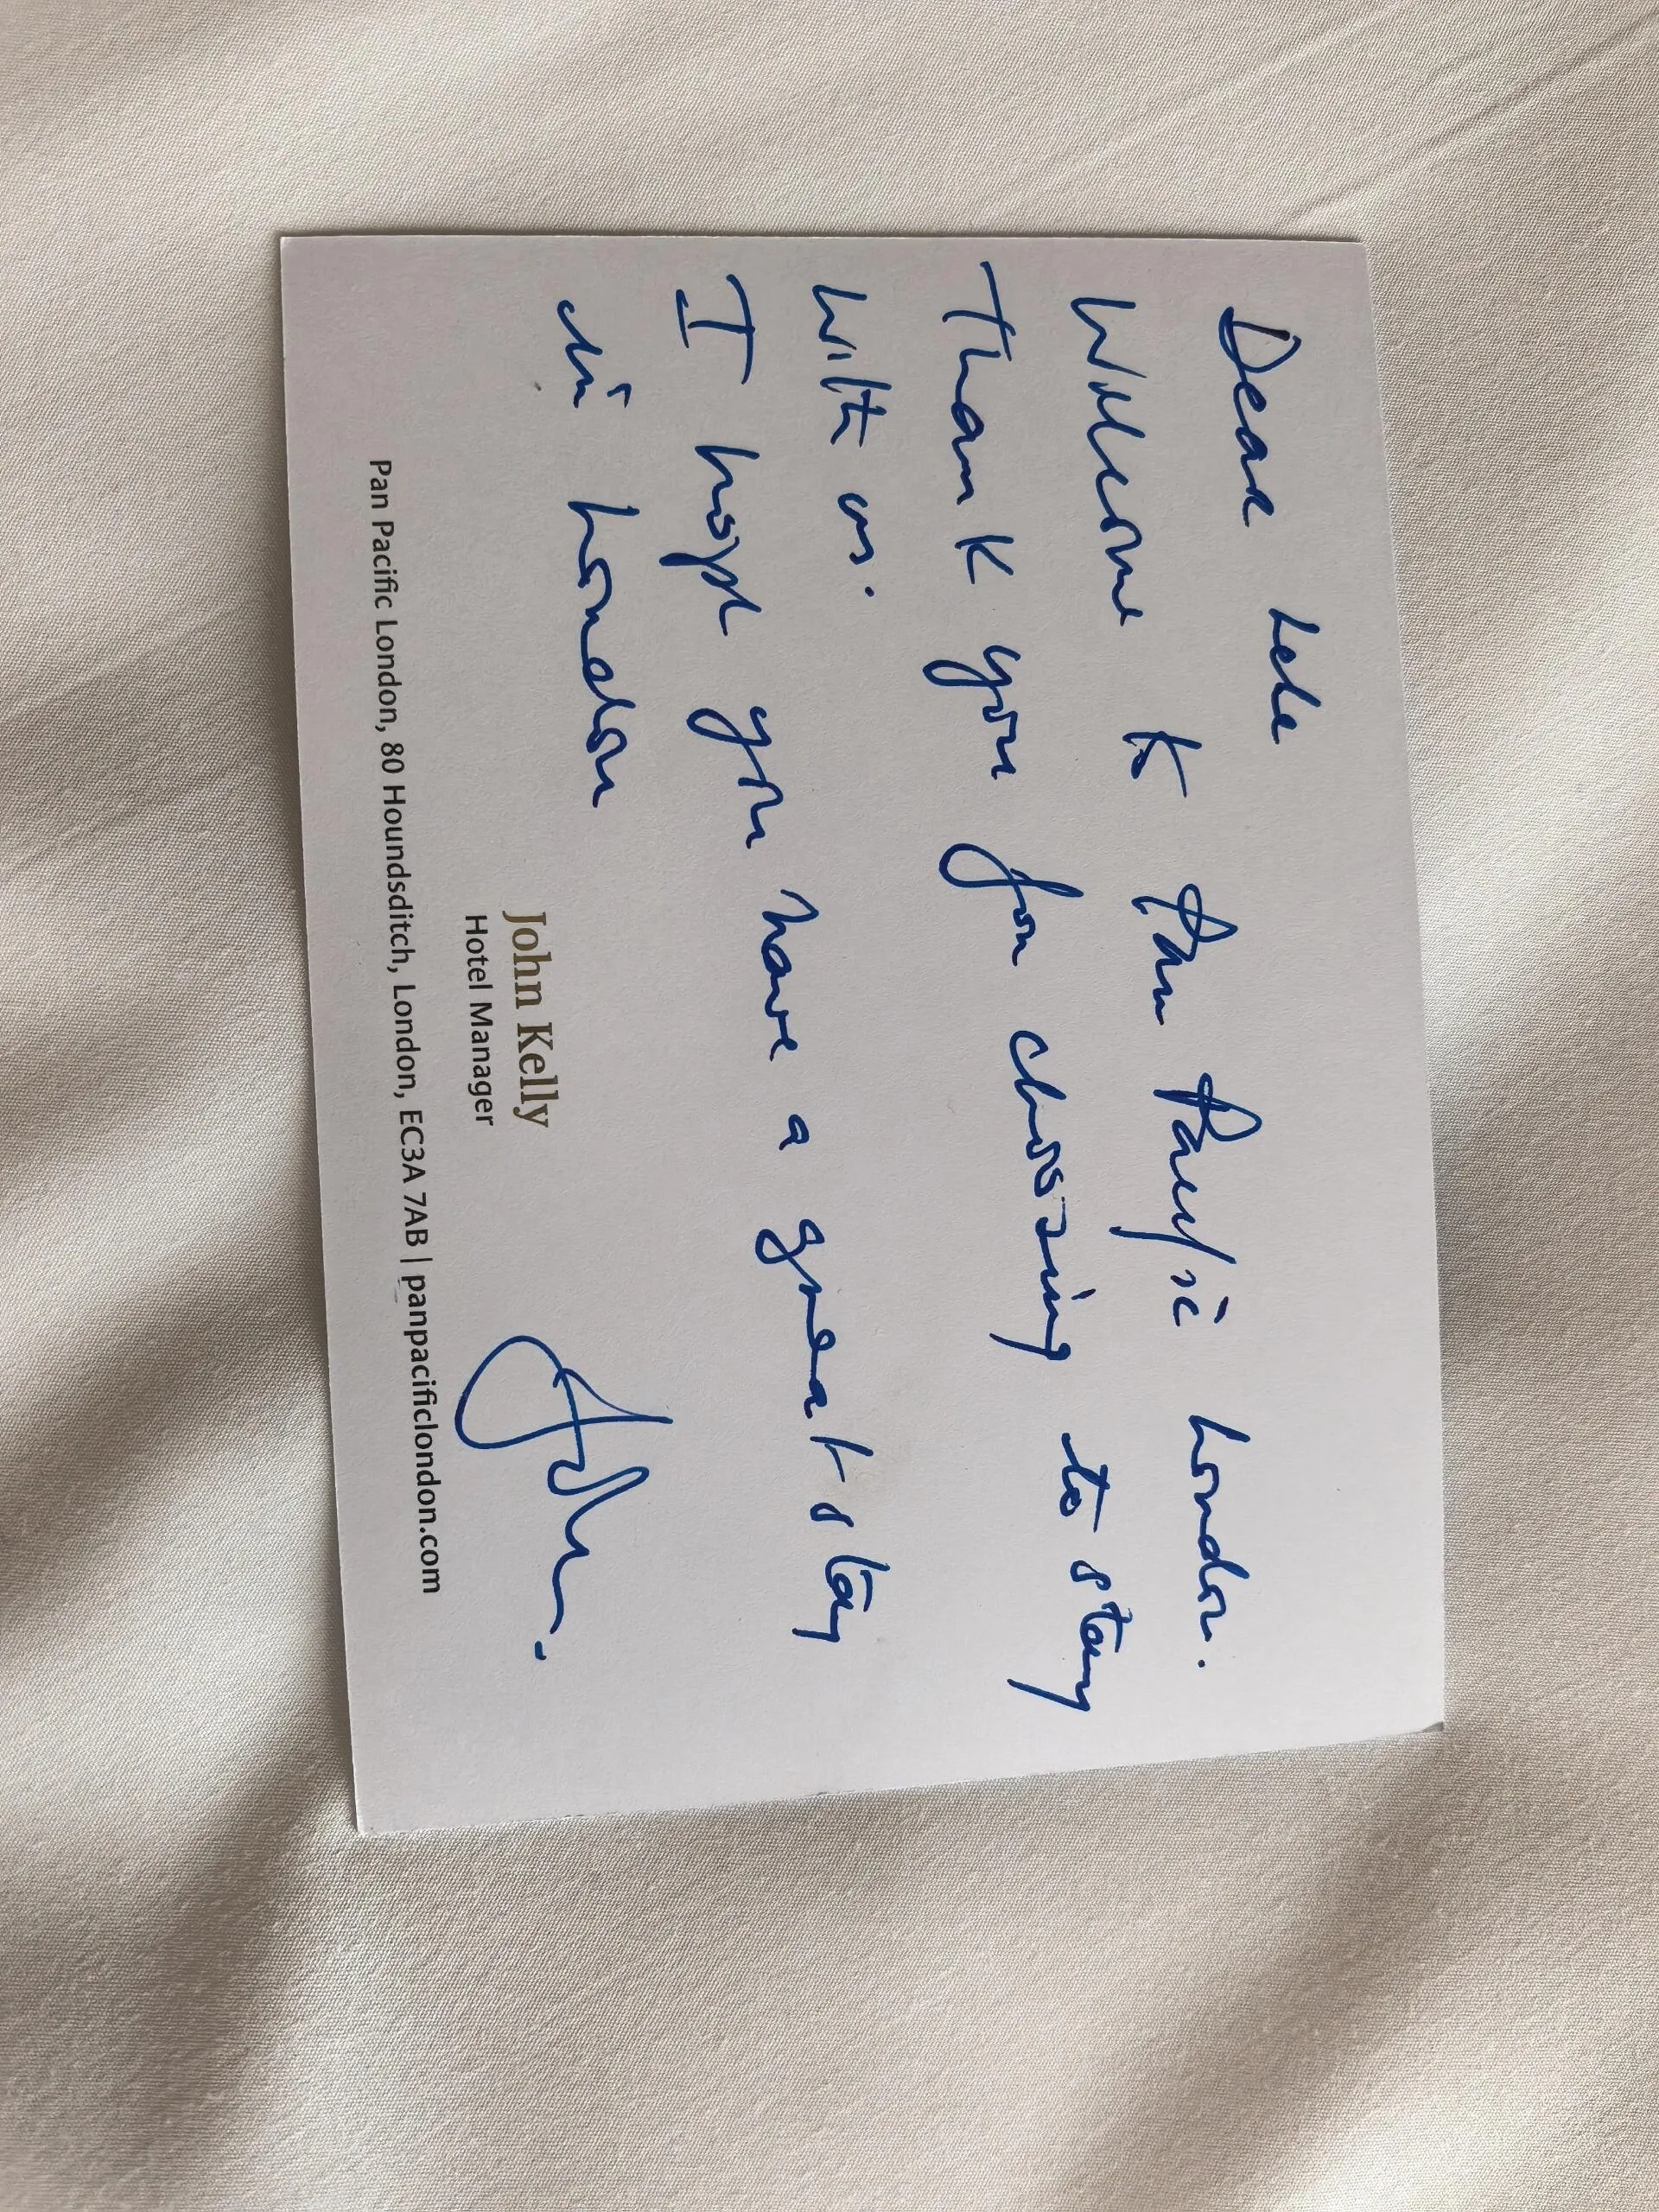 Dear Lele
Welcome to Pan Pacific London.
Thank you for choosing to stay
with us.
I hope you have a great stay
in London
John Kelly
Hotel Manager
John.
Pan Pacific London, 80 Houndsditch, London, EC3A 7AB | panpacificlondon.com